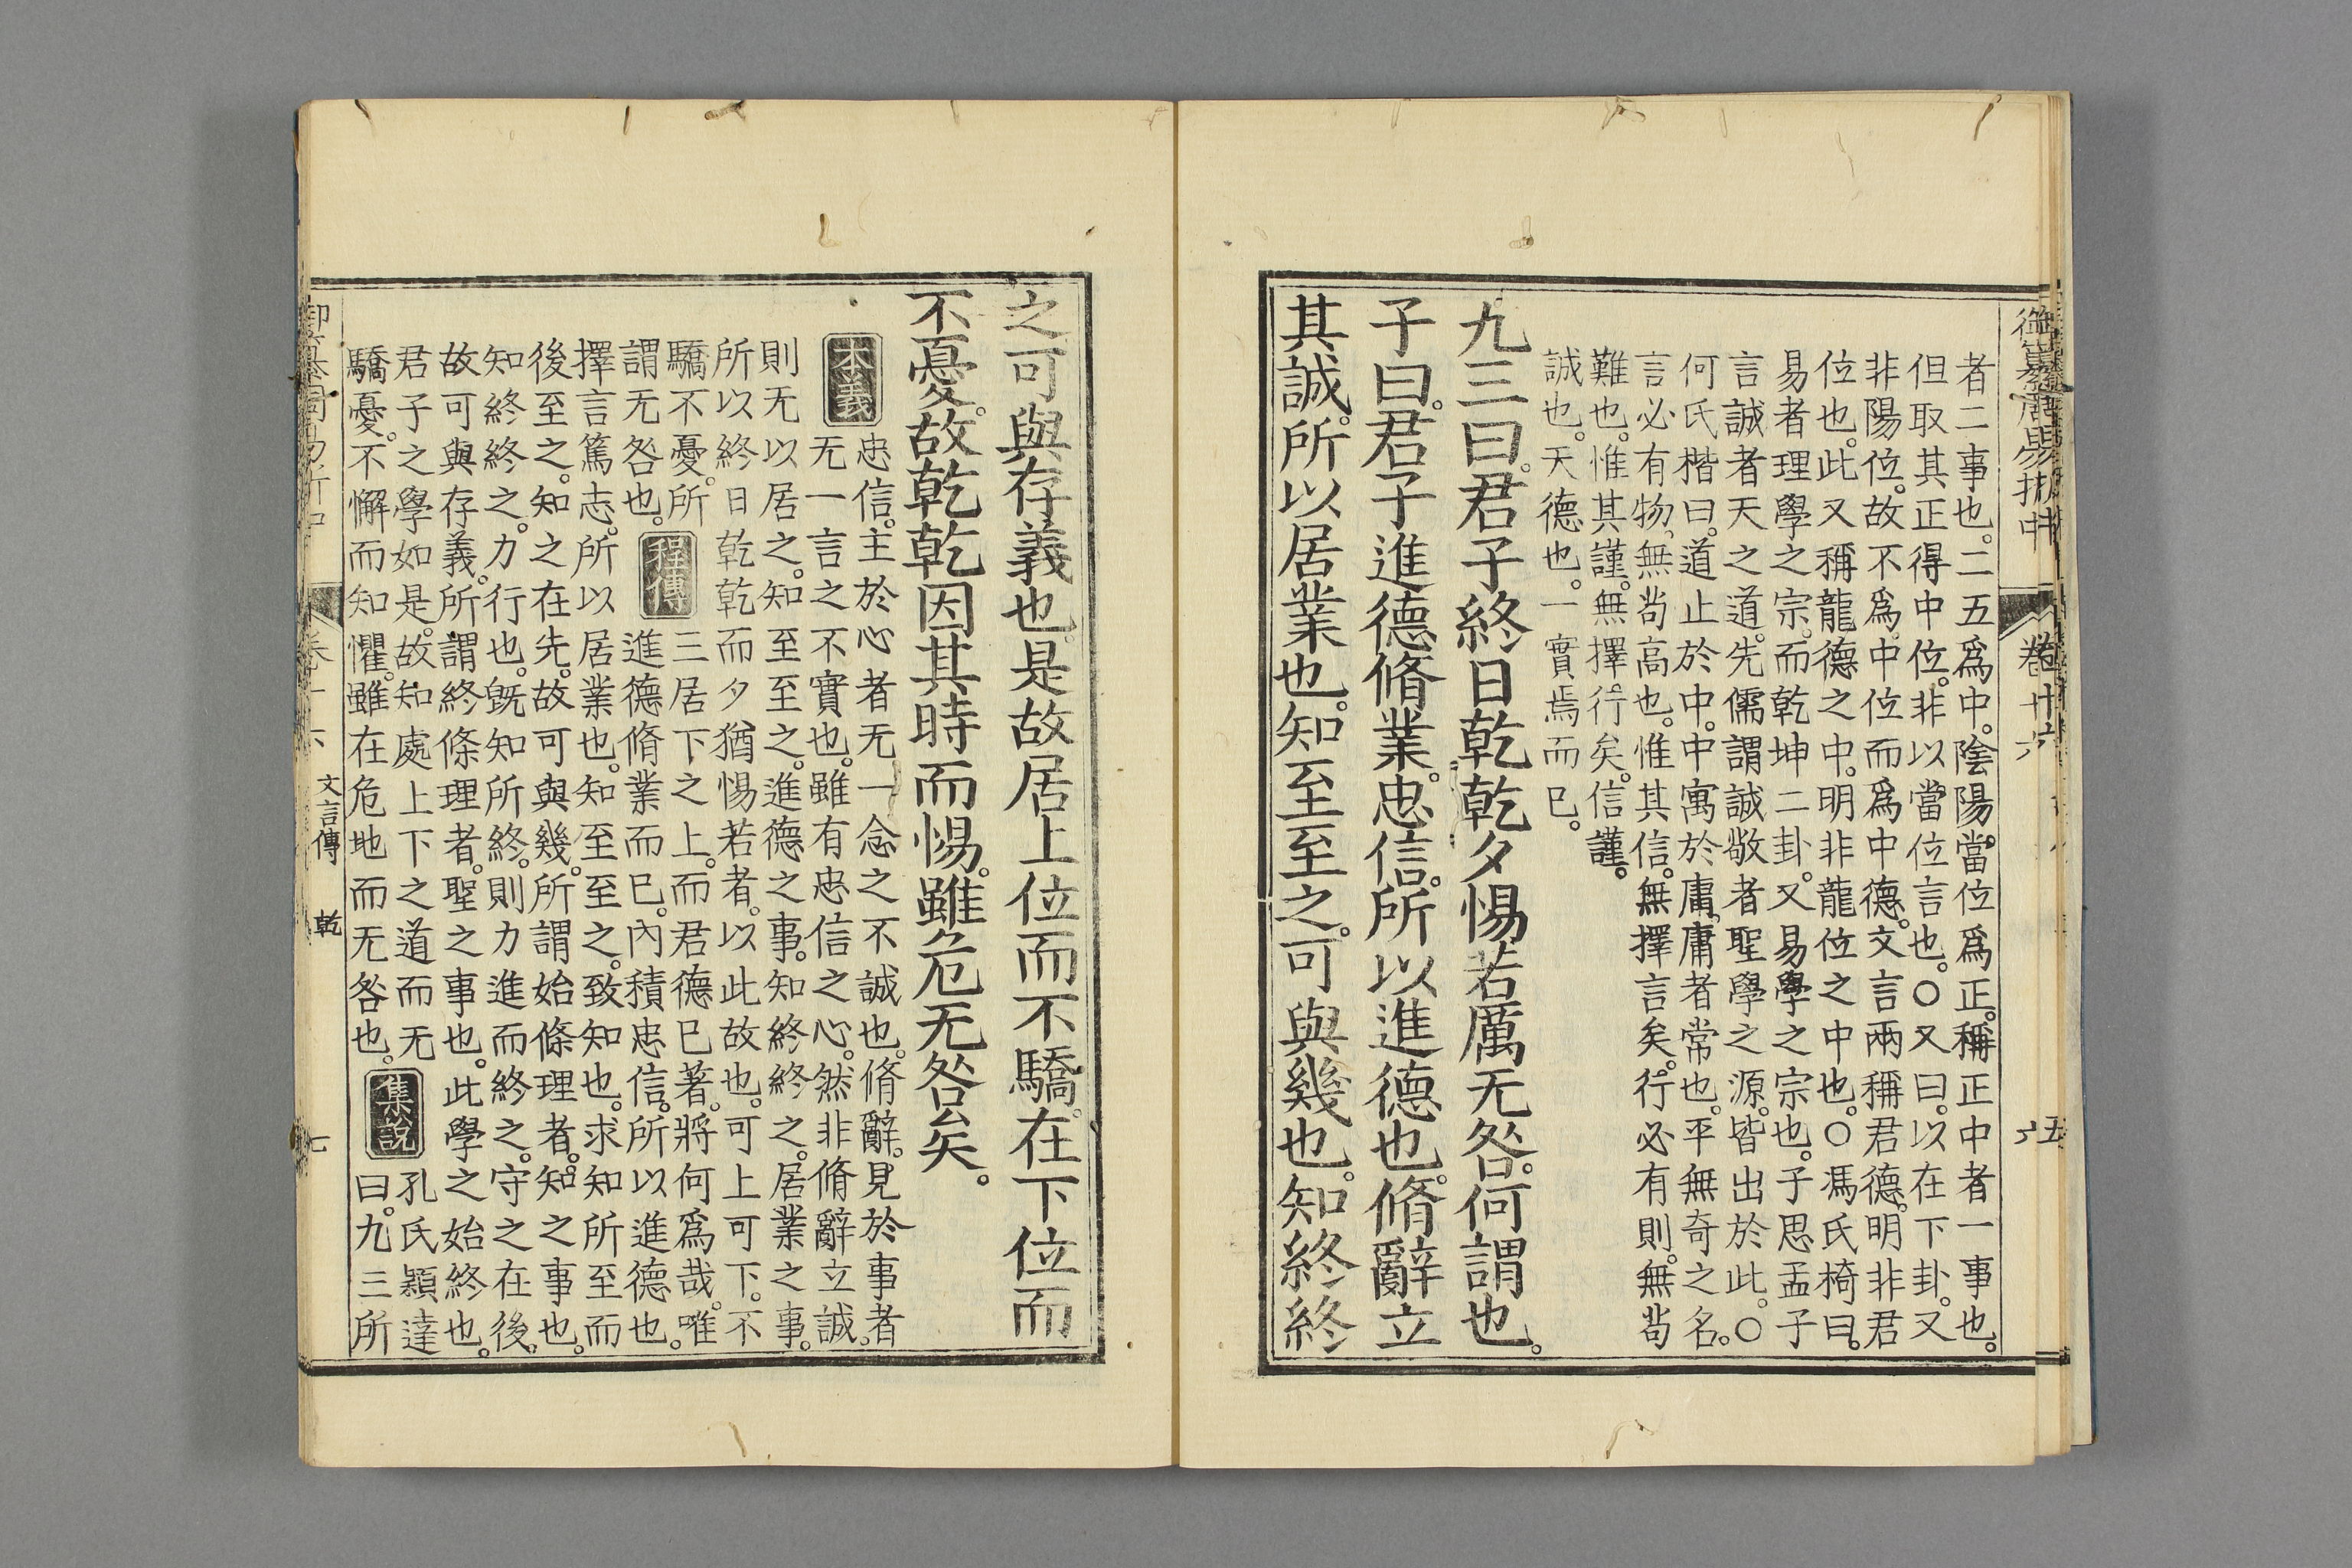 御纂周易折中 卷十六 五
者二事也。二五爲中。陰陽當位爲正。稱正中者一事也。
但取其正得中位。非以當位言也。○又曰。以在下卦。又
非陽位。故不爲中位。而爲中德。文言兩稱君德。明非君
位也。此又稱龍德之中。明非龍位之中也。○馮氏椅曰。
易者理學之宗。而乾坤二卦。又易學之宗也。子思孟子
言誠者天之道。先儒謂誠敬者聖學之源。皆出於此。○
何氏楷曰。道止於中。中寓於庸。庸者常也。平無奇之名。
言必有物。無尚高也。惟其信。無擇言矣。行必有則。無苟
難也。惟其謹。無擇行矣。信謹。
誠也。天德也。一實焉而已。
九三曰。君子終日乾乾夕惕若厲无咎。何謂也。
子曰。君子進德脩業。忠信。所以進德也。脩辭立
其誠。所以居業也。知至至之。可與幾也。知終終
之可與存義也。是故居上位而不驕。在下位而
不憂。故乾乾因其時而惕。雖危无咎矣。
本義
忠信。主於心者无一念之不誠也。脩辭。見於事者
无一言之不實也。雖有忠信之心。然非脩辭立誠。
則无以居之。知至至之。進德之事。知終終之。居業之事。
所以終日乾乾而夕猶惕若者。以此故也。可上可下。不
驕不憂。所
謂无咎也。
程傳
三居下之上。而君德已著。將何爲哉。唯
進德脩業而已。內積忠信。所以進德也。
擇言篤志。所以居業也。知至至之。致知也。求知所至而
後至之。知之在先。故可與幾。所謂始條理者。知之事也。
知終終之。力行也。旣知所終。則力進而終之。守之在後。
故可與存義。所謂終條理者。聖之事也。此學之始終也。
君子之學如是。故知處上下之道而无
驕憂。不懈而知懼。雖在危地而无咎也。
集說
孔氏穎達
曰。九三所
文言傳 乾
七